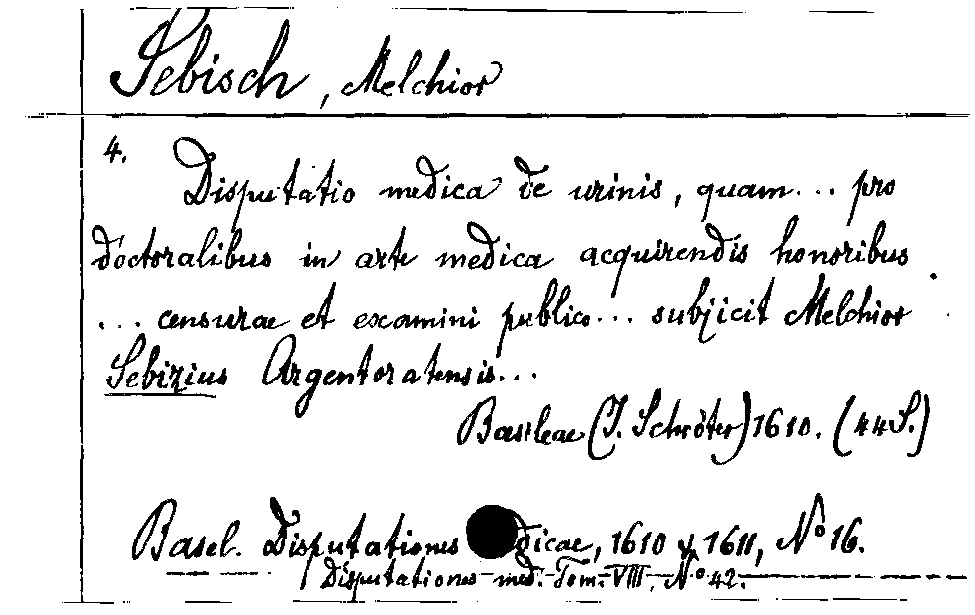 Sebisch, Melchior
4.
Disputatio medica de urinis, quam... pro
doctoralibus in arte medica acquirendis honoribus
... censurae et examini publico... subjicit Melchior
Sebizius Argentoratensis...
Basileae (J. Schröter) 1610. (44 S.)
Basel. Disputationes dicae, 1610 & 1611, No 16.
Disputationes med. Tom. VIII, No 42.